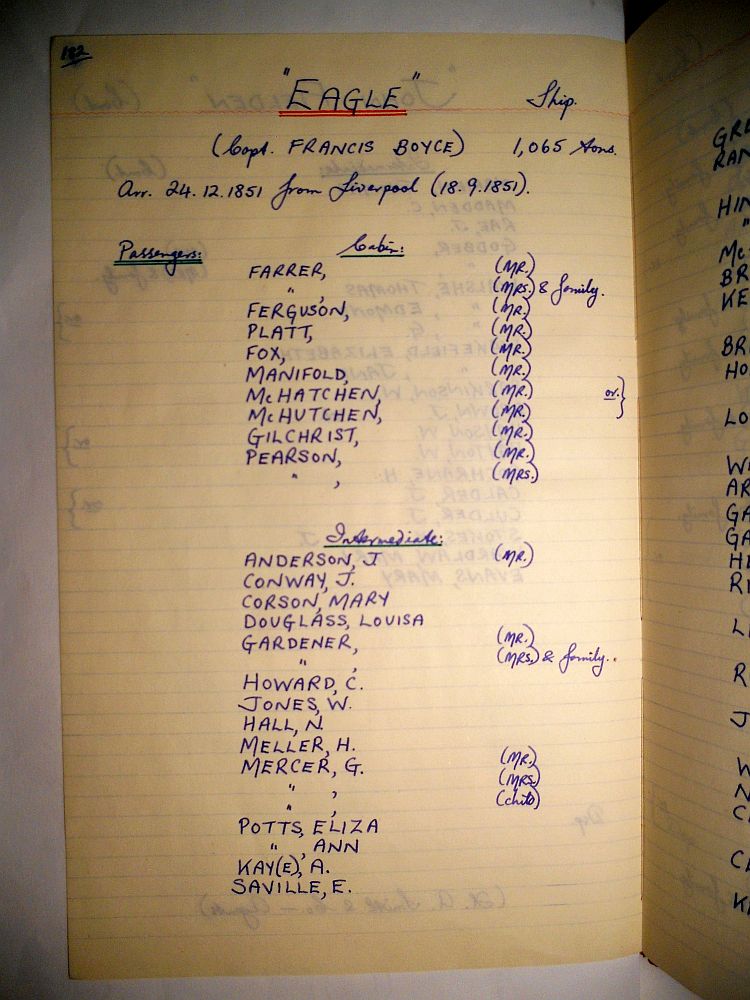 182
"EAGLE" Ship.
(Capt. FRANCIS BOYCE) 1,065 tons.
Arr. 24.12.1851 from Liverpool (18.9.1851).
Passengers: Cabin:
FARRER, (MR.)
" , (MRS.) & family.
FERGUSON, (MR.)
PLATT, (MR.)
FOX, (MR.)
MANIFOLD, (MR.)
McHATCHEN, (MR.) or }
McHUTCHEN, (MR.)
GILCHRIST, (MR.)
PEARSON, (MR.)
" , (MRS.)
Intermediate:
ANDERSON, J (MR.)
CONWAY, J.
CORSON, MARY
DOUGLASS, LOUISA
GARDENER, (MR.)
" , (MRS.) & family.
HOWARD, C.
JONES, W.
HALL, N.
MELLER, H.
MERCER, G. (MR.)
" , (MRS.)
" , (child)
POTTS, ELIZA
" , ANN
KAY(E), A.
SAVILLE, E.
GRE
RAN
HIN
"
Mc
BR
KE
BR
HO
LO
W
AR
GA
GA
HE
RI
L
R
J
W
N
C
CA
K